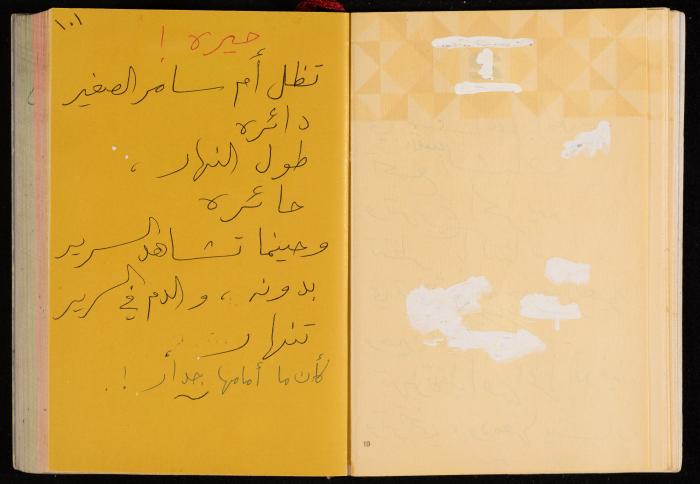 ١٠١
حيره !
تظل أم سامر الصغير
دائره
طول النهار ،
حائره
وحينما تشاهد السرير
بدونه ، والدم في السرير
تنهار
كأن ما أمامها جدار ! .
19